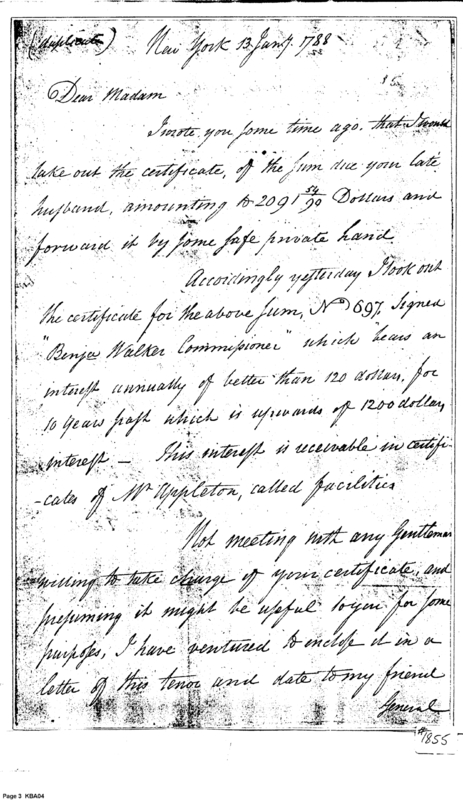 (duplicate)
New York 13 Jany. 1788
Dear Madam
I wrote you some time ago, that I would
take out the certificate, of the sum due your late
husband, amounting to 2091 54/90 Dollars and
forward it by some safe private hand.
Accordingly yesterday I took out
the certificate for the above sum, No 697, Signed
"Benja Walker Commissioner" which bears an
interest annually of better than 120 dollars, for
10 years past which is upwards of 1200 dollars
interest — This interest is receivable in certifi-
-cates of Mr Appleton, called facilities
Not meeting with any Gentleman
willing to take charge of your certificate, and
presuming it might be useful to you for some
purposes, I have ventured to inclose it in a
letter of this tenor and date to my friend
General
#1855
Page 3 KBA04